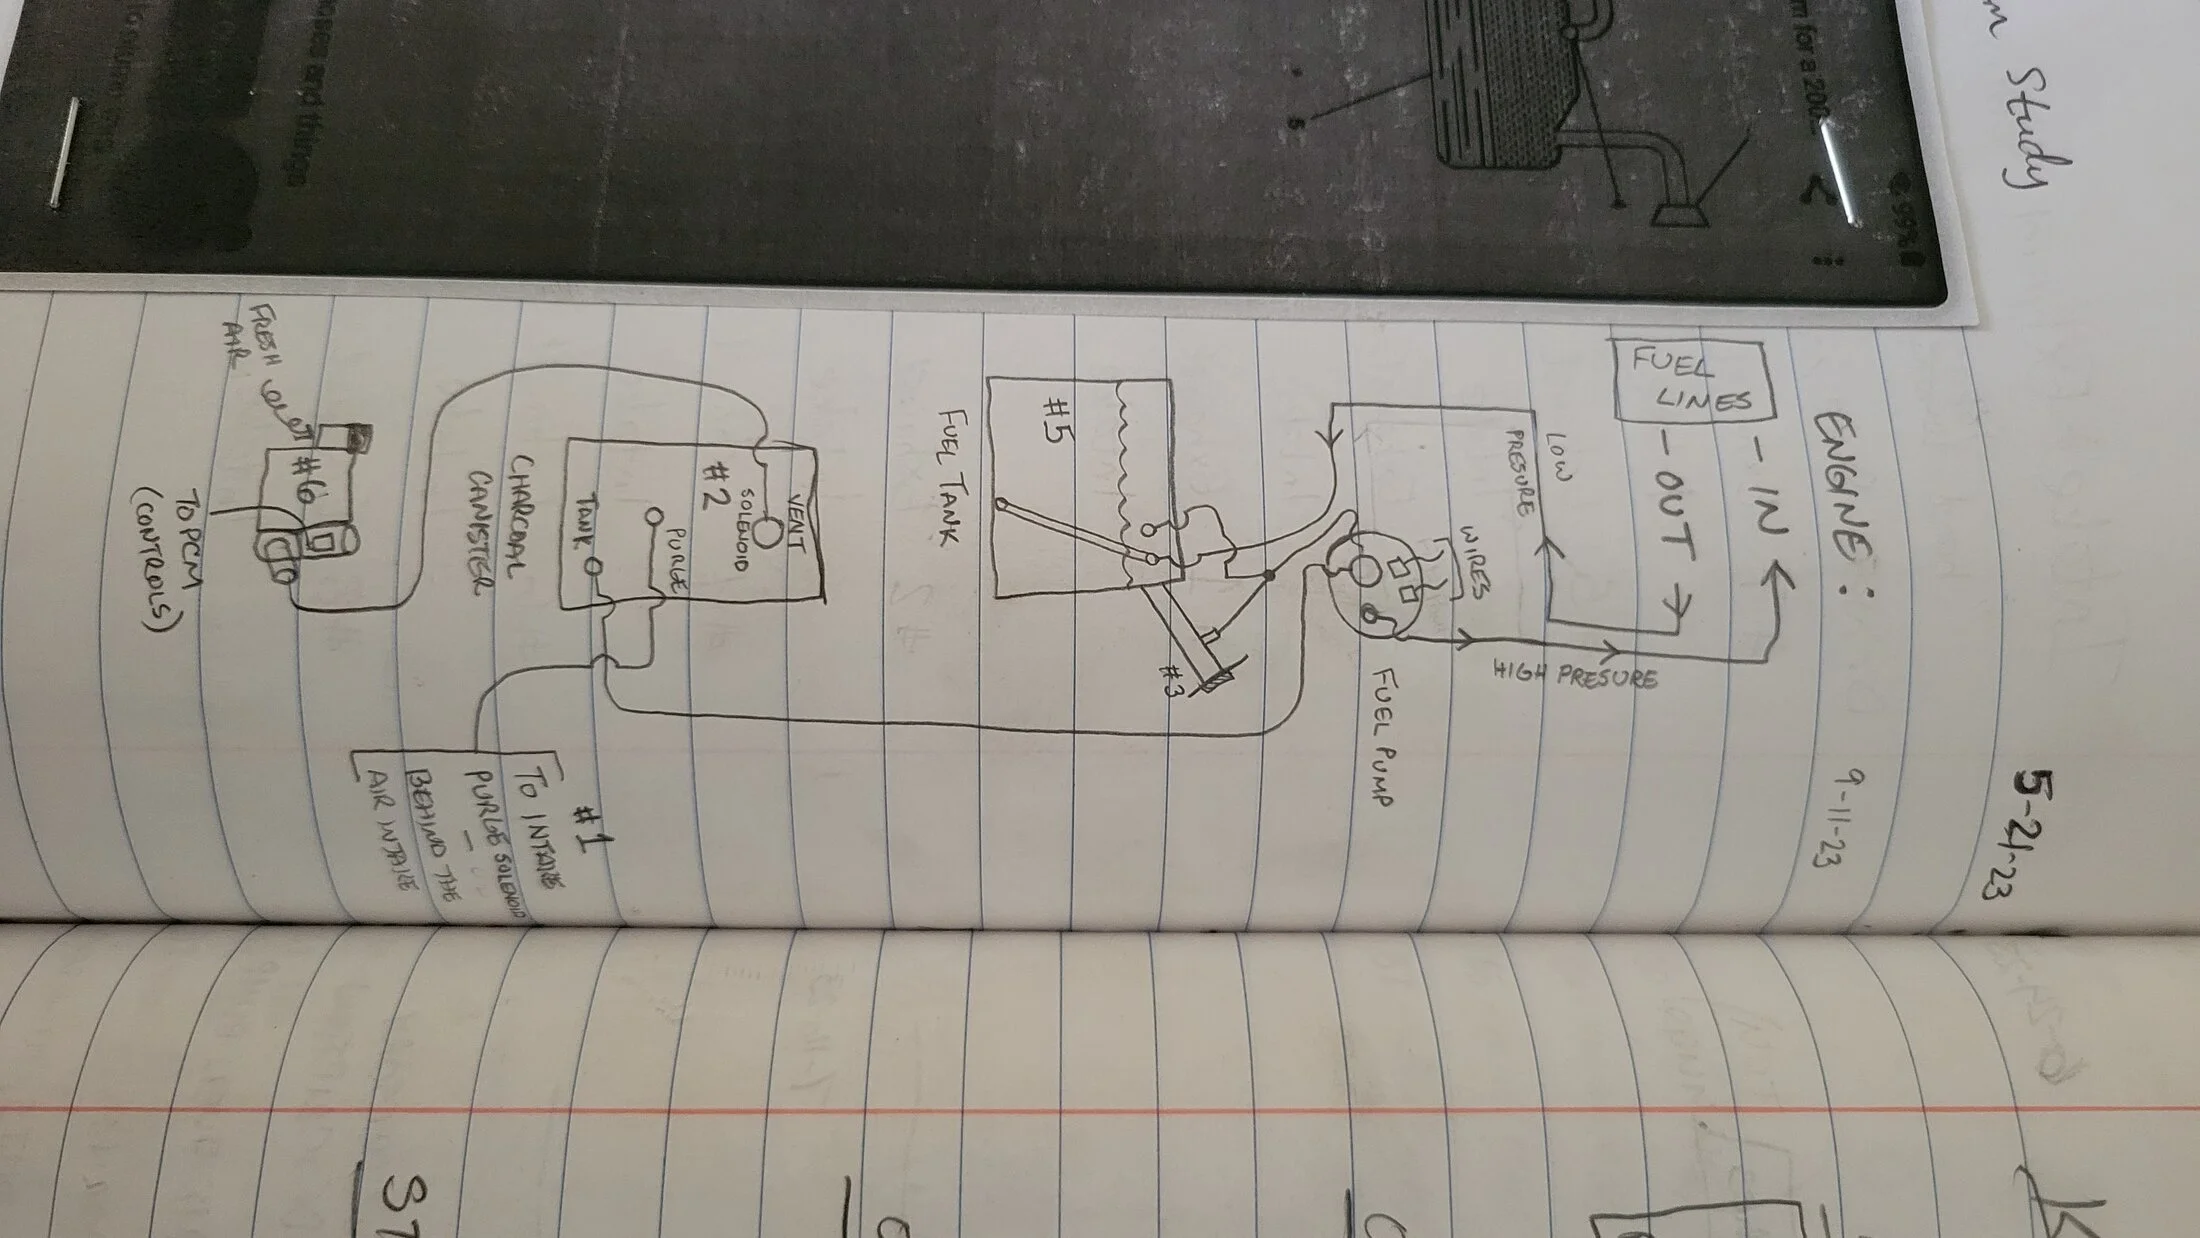 m Study
5-21-23
m for a 200
99%
oses and things
5
ENGINE:
9-11-23
FUEL
LINES
- IN
- OUT
LOW
PRESSURE
HIGH PRESURE
WIRES
FUEL PUMP
#3
#5
FUEL TANK
VENT
SOLENOID
#2
PURGE
TANK
CHARCOAL
CANISTER
#1
TO INTAKE
PURGE SOLENOID
-
BEHIND THE
AIR INTAKE
FRESH
AIR
#6
TO PCM
(CONTROLS)